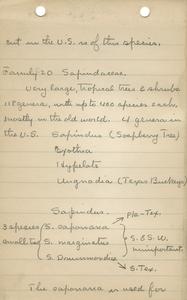 cut in the U.S. is of this species.
Family 20 Sapindaceae.
Very large, tropical trees & shrubs
118 genera, with up to 400 species each,
mostly in the old world. 4 genera in
the U.S. Sapindus (Soapberry Tree)
Exothea
Hypelate
Ungnadia (Texas Buckeye)
Sapindus.
Fla-Tex.
3 species S. saponaria
small trees S. marginatus S. & S.W. unimportant.
S. Drummondii
S. Tex.
The saponaria is used for